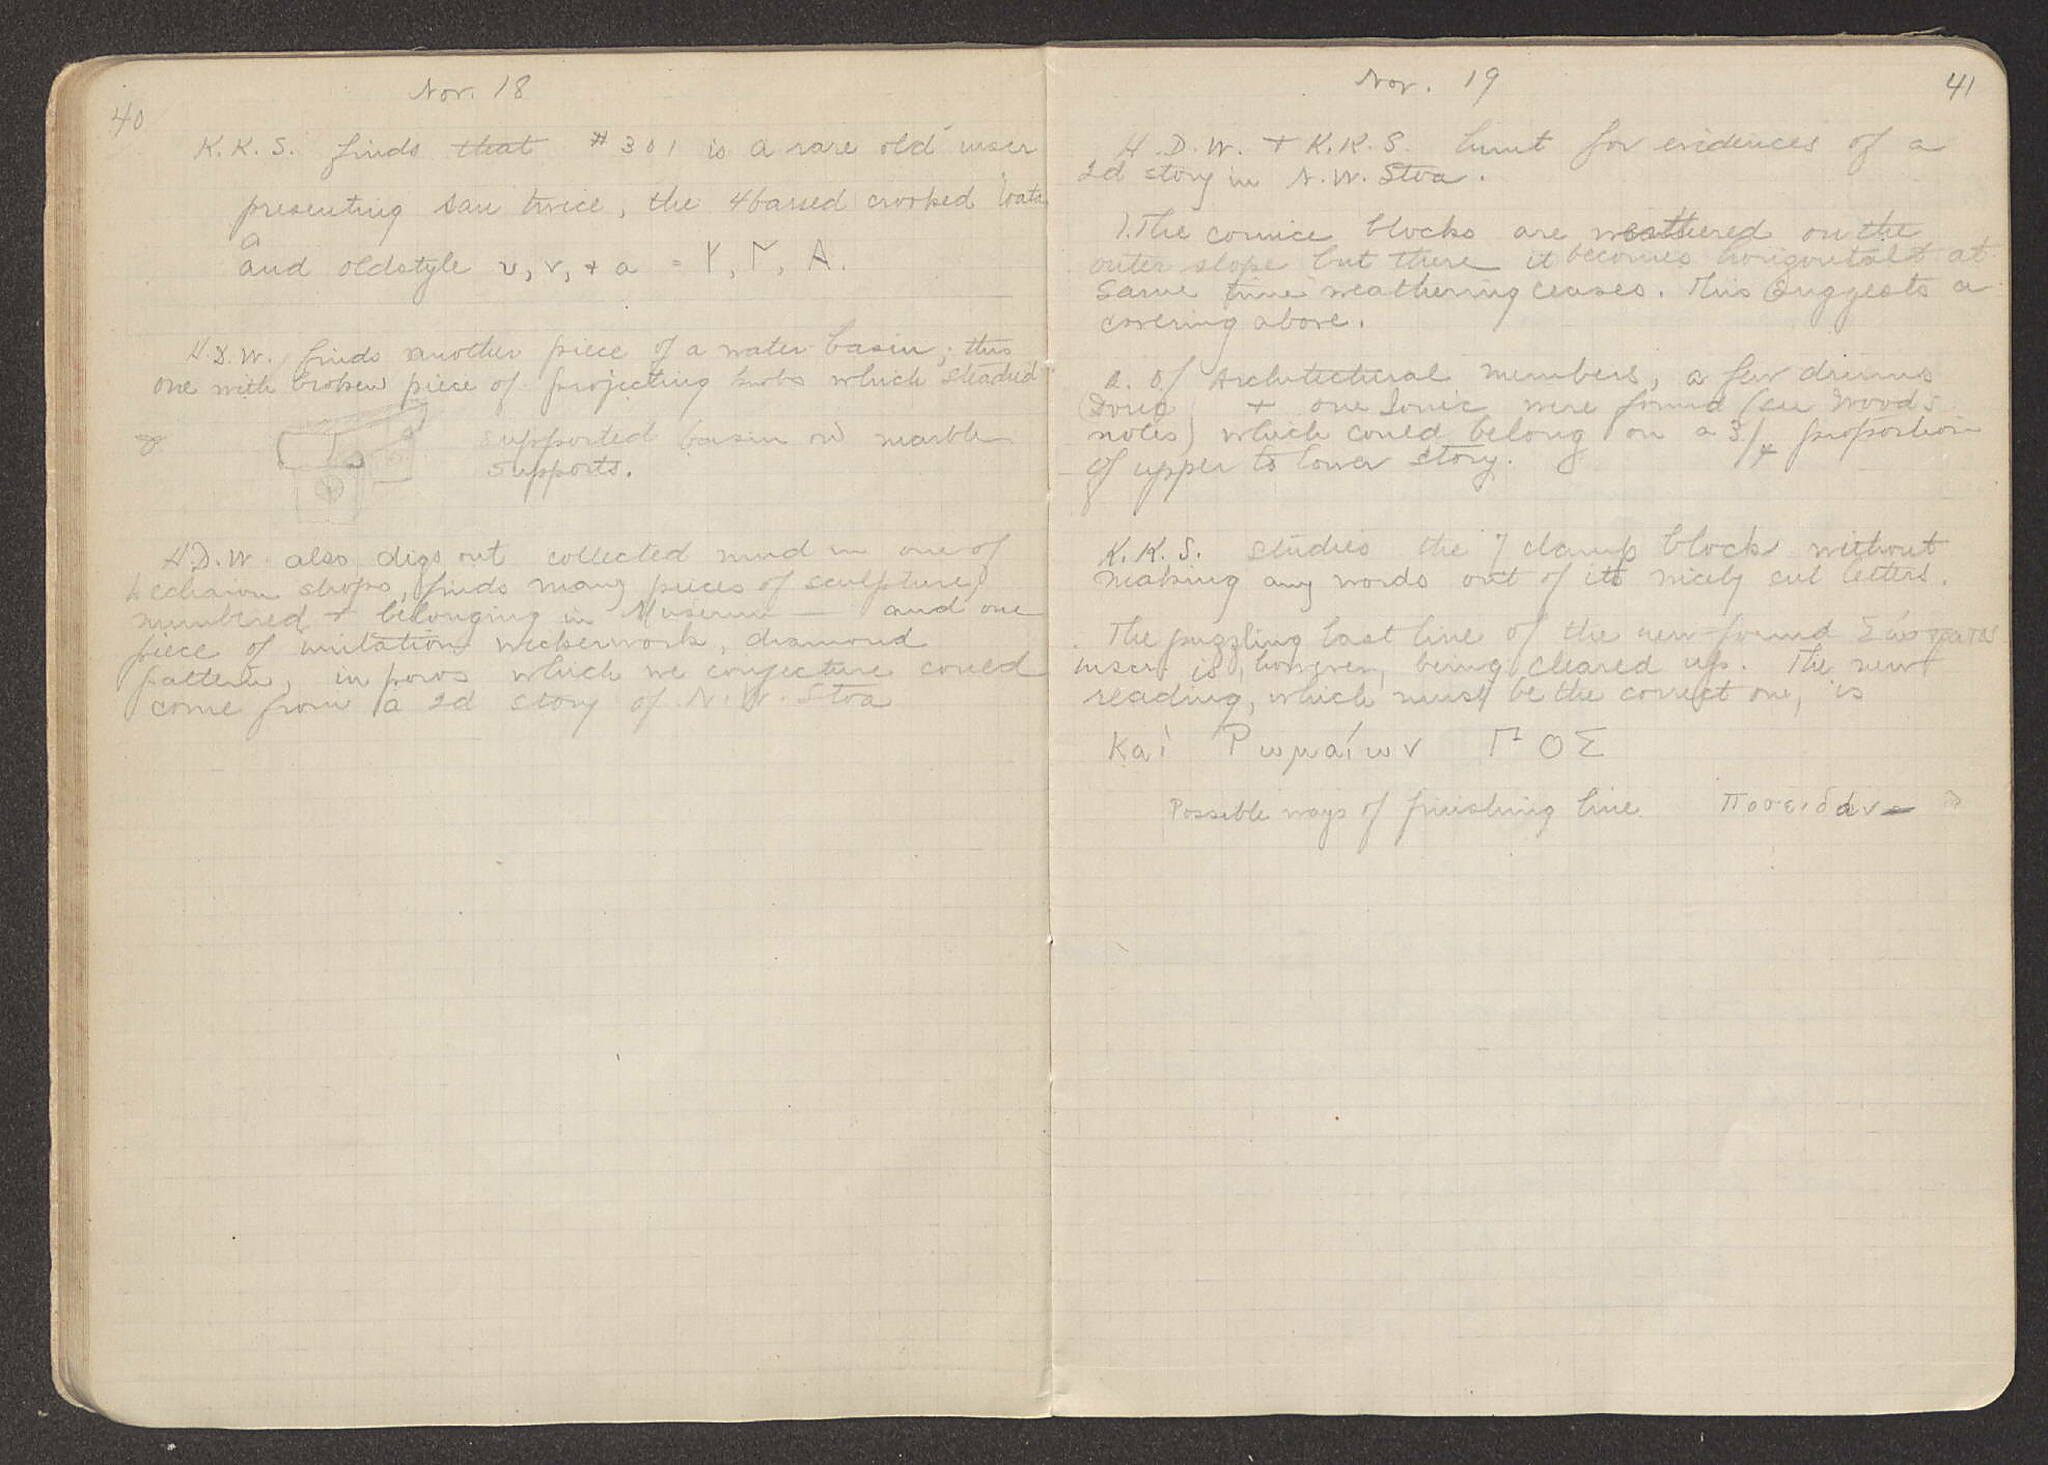 40
Nov. 18
K.K.S. finds that #301 is a rare old inscr
presenting san twice, the 4 barred crooked iota
a
and oldstyle υ, ν, + a = Υ, Γ, A.
H.D.W. finds another piece of a water basin; this
one with broken piece of projecting knobs which steadied
supported basin on marble
supports.
H.D.W. also digs out collected mud in one of
Lechaion shops, finds many pieces of sculpture,
numbered + belonging in Museum — and one
piece of imitation wickerwork, diamond
pattern, in poros which we conjecture could
come from a 2d story of N.W. Stoa
Nov. 19
41
H.D.W. + K.K.S. hunt for evidences of a
2d story in N.W. Stoa.
1. The cornice blocks are weathered on the
outer slope but there it becomes horizontal at
same time weathering ceases. This suggests a
covering above.
2. Of Architectural members, a few drums
(Doric + one Ionic were found (see Wood's
notes) which could belong on a 3/4 proportion
of upper to lower story.
K.K.S. studies the 7 clamp block without
making any words out of its nicely cut letters.
The puzzling last line of the new-found
inscr. is, however, being cleared up. The new
reading, which must be the correct one, is
Καὶ Ρωμαίων Γ ΟΣ
Possible ways of finishing line Ποσειδάν– ?